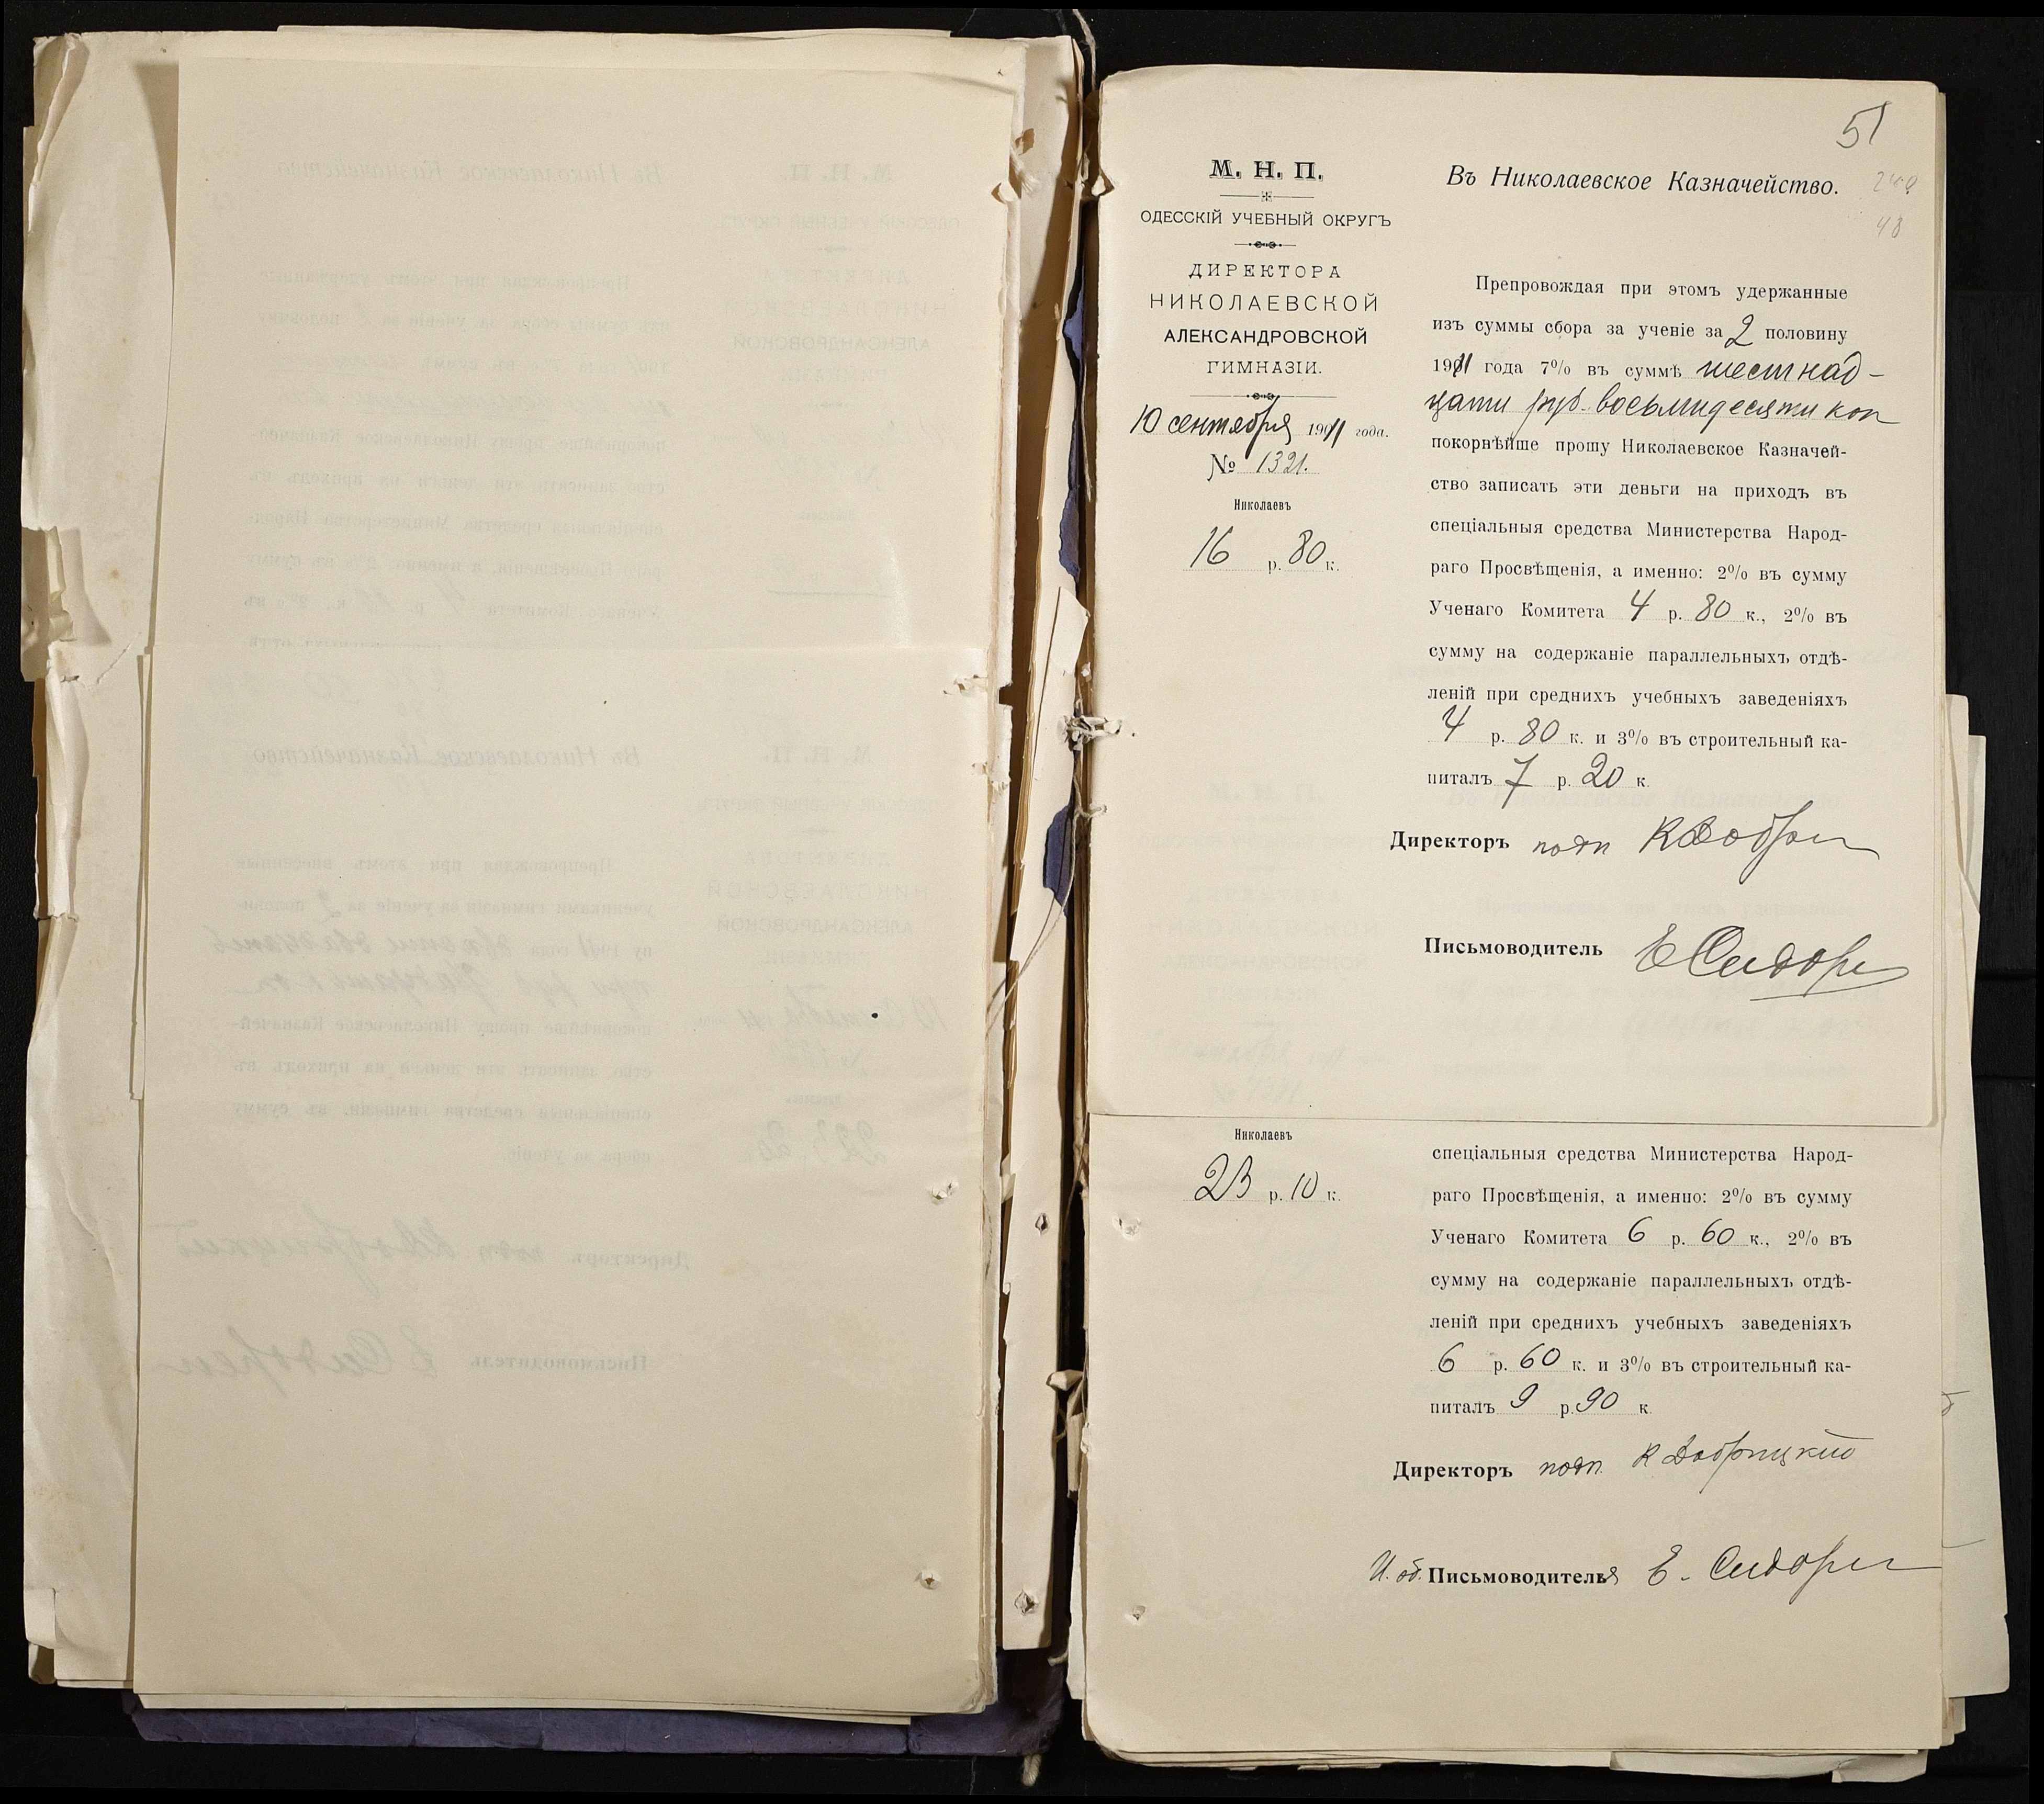 51
М. Н. П.
ОДЕССКІЙ УЧЕБНЫЙ ОКРУГЪ
ДИРЕКТОРА
НИКОЛАЕВСКОЙ
АЛЕКСАНДРОВСКОЙ
ГИМНАЗІИ.
10 сентября 1911 года.
№ 1321.
Николаевъ
16 р. 80 к.
Въ Николаевское Казначейство.
48
Препровождая при этомъ удержанные
изъ суммы сбора за ученіе за 2 половину
1911 года 7% въ суммѣ шестнад-
цати руб. восьмидесяти коп
покорнѣйше прошу Николаевское Казначей-
ство записать эти деньги на приходъ въ
спеціальныя средства Министерства Народ-
раго Просвѣщенія, а именно: 2% въ сумму
Ученаго Комитета 4 р. 80 к., 2% въ
сумму на содержаніе параллельныхъ отдѣ-
леній при среднихъ учебныхъ заведеніяхъ
4 р. 80 к. и 3% въ строительный ка-
питалъ 7 р. 20 к.
Директоръ подп
Письмоводитель Е Сидор
Николаевъ
23 р. 10 к.
спеціальныя средства Министерства Народ-
раго Просвѣщенія, а именно: 2% въ сумму
Ученаго Комитета 6 р. 60 к., 2% въ
сумму на содержаніе параллельныхъ отдѣ-
леній при среднихъ учебныхъ заведеніяхъ
6 р. 60 к. и 3% въ строительный ка-
питалъ 9 р. 90 к.
Директоръ подп. К Добрицкій
И. об. Письмоводителя Е. Сидор